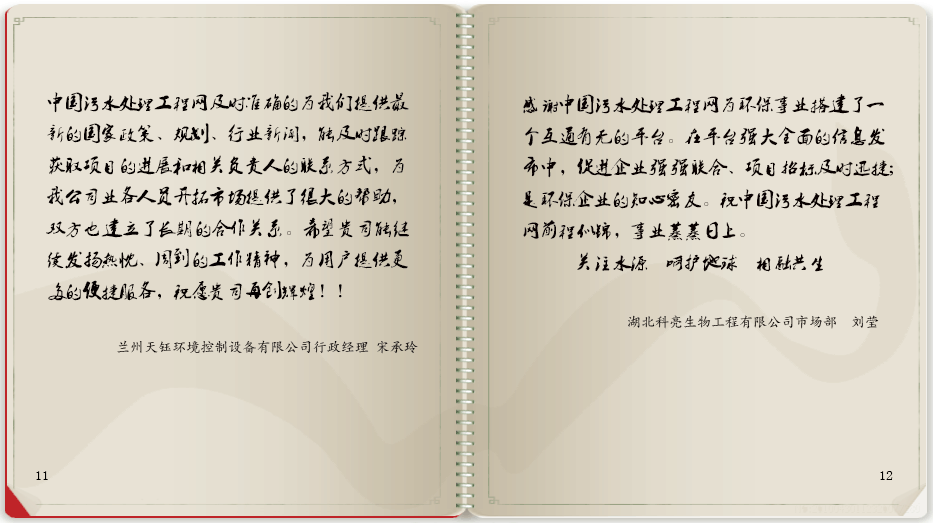 中国污水处理工程网及时准确的为我们提供最
新的国家政策、规划、行业新闻，能及时跟踪
获取项目的进展和相关负责人的联系方式，为
我公司业各人员开拓市场提供了很大的帮助，
双方也建立了长期的合作关系。希望贵司能继
续发扬热忱、周到的工作精神，为用户提供更
多的便捷服务，祝愿贵司再创辉煌！！
兰州天钰环境控制设备有限公司行政经理 宋承玲
11
感谢中国污水处理工程网为环保事业搭建了一
个互通有无的平台。在平台强大全面的信息发
布中，促进企业强强联合、项目招标及时迅捷；
是环保企业的知心密友。祝中国污水处理工程
网前程似锦，事业蒸蒸日上。
关注水源 呵护地球 相融共生
湖北科亮生物工程有限公司市场部 刘莹
12